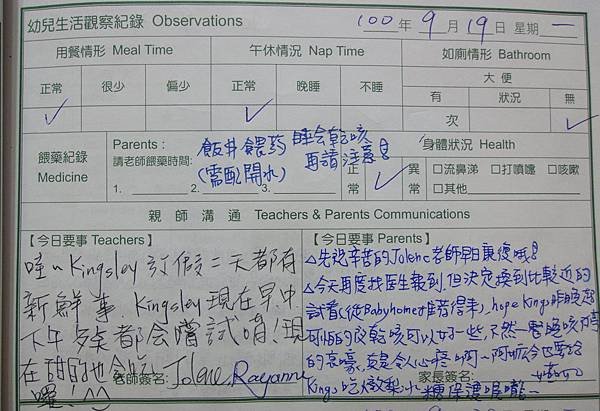 幼兒生活觀察紀錄 Observations 100年9月19日 星期一
用餐情形 Meal Time 午休情況 Nap Time 如廁情形 Bathroom
正常 很少 偏少 正常 晚睡 不睡 大便
有 狀況 無
✓ ✓ 次 ✓
餵藥紀錄 Medicine
Parents:
請老師餵藥時間:
1. 2. 3.
飯前餵药 睡会乾咳
(需配開水) 再請注意!
身體狀況 Health
正常 ✓ 異常 □流鼻涕 □打噴嚏 □咳嗽
□其他
親師溝通 Teachers & Parents Communications
【今日要事 Teachers】
哇~Kingsley 放假二天都有
新鮮事, Kingsley 現在早.中.
下午 都会嚐試 現
在甜的也会吃
囉! ^^
老師簽名: Jolene, Rayanne
【今日要事 Parents】
△先說辛苦的Jolene老師早日康復哦!
△今天再度找医生報到,但決定換到比較近的
試看(從Babyhome推薦得來), hope Kings昨晚起
可怕的夜乾咳可以好一些,不然一整晚咳
的 ,真是令人心 啊~阿 今也要給
Kings吃燉梨水 保護喉嚨~
家長簽名: